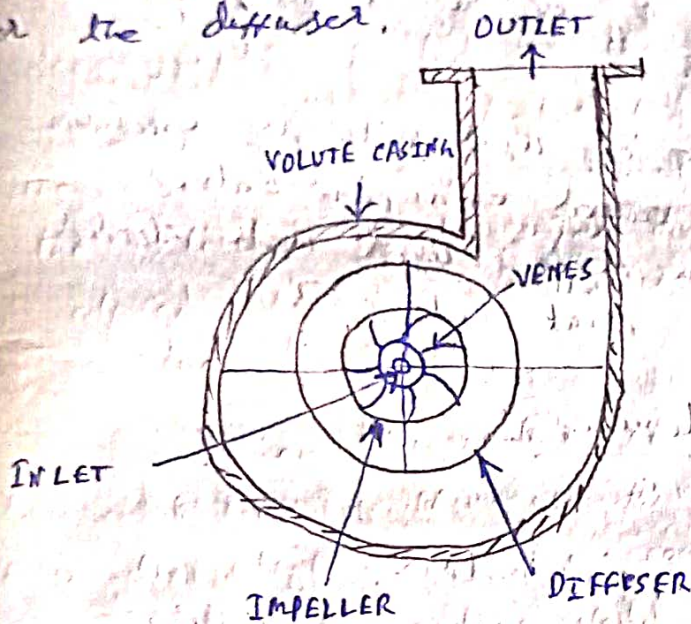 the diffuser.
OUTLET
VOLUTE CASING
VENES
INLET
IMPELLER
DIFFUSER